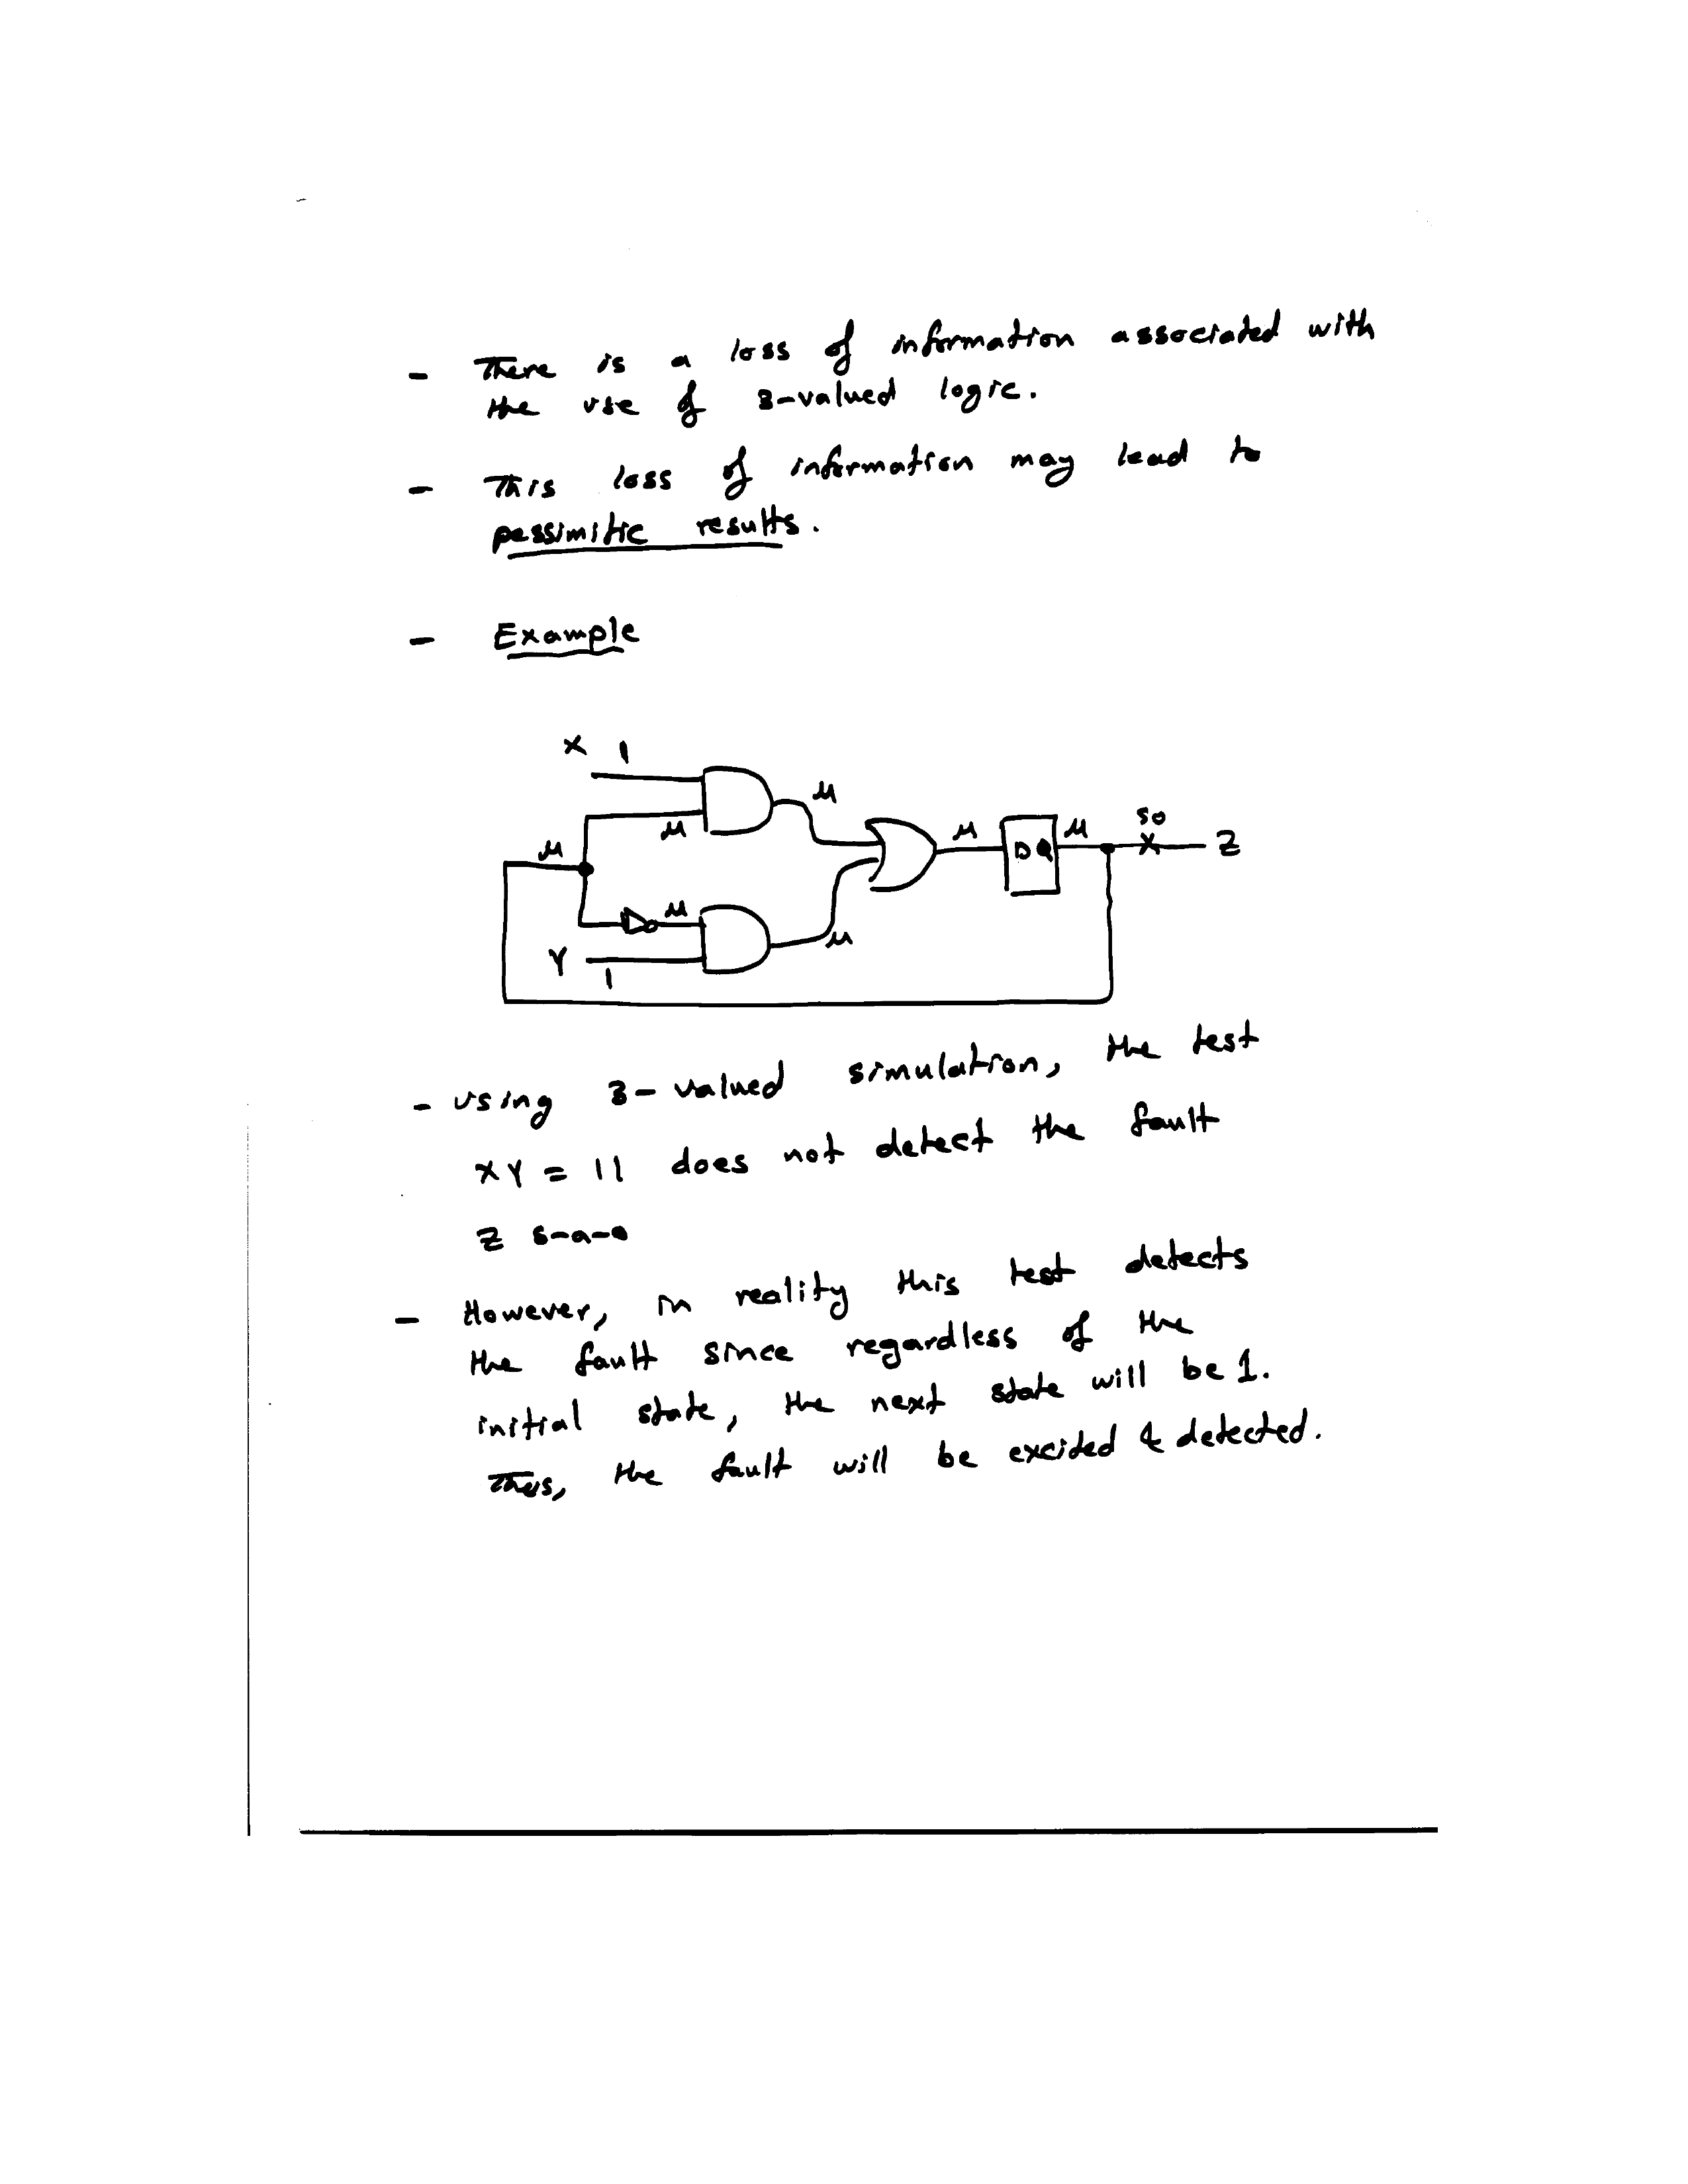 - There is a loss of information associated with
the use of 3-valued logic.
- This loss of information may lead to
pessimitic results.
- Example
X 1
μ
μ
μ
μ
DQ
μ
s0
Z
μ
μ
μ
Y
1
- Using 3-valued simulation, the test
XY = 11 does not detect the fault
Z s-a-0
- However, in reality this test detects
the fault since regardless of the
initial state, the next state will be 1.
Thus, the fault will be excided & detected.